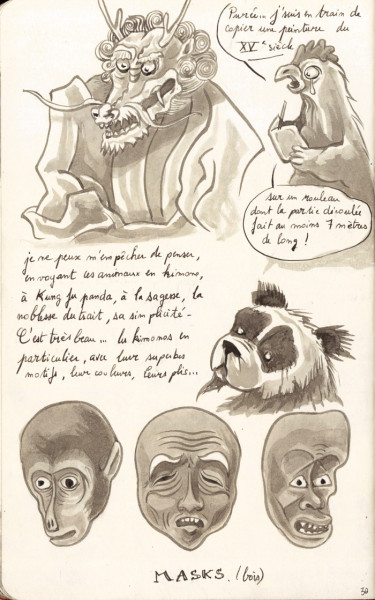 Purée... j'suis en train de
copier une peinture du
XVᵉ siècle
sur un rouleau
dont la partie déroulée
fait au moins 7 mètres
de long !
je ne peux m'empêcher de penser,
en voyant les animaux en kimono,
à Kung fu panda, à la sagesse, la
noblesse du trait, sa simplicité -
C'est très beau... les kimonos en
particulier, avec leurs superbes
motifs, leurs couleurs, leurs plis...
MASKS. (bois)
30